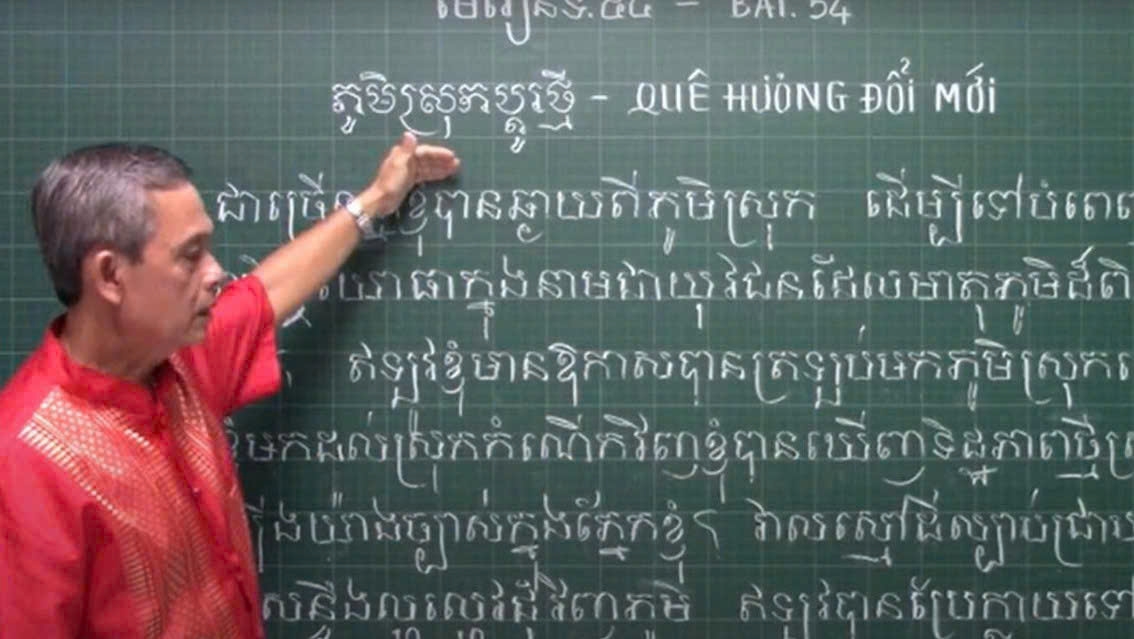 មេរៀនទី.៥៤ - BÀI. 54
ភូមិស្រុកប្តូរថ្មី - QUÊ HƯƠNG ĐỔI MỚI
ជាច្រើន ខ្ញុំបានឆ្ងាយពីភូមិស្រុក ដើម្បីទៅបំពេញ
យោធាក្នុងនាមជាយុវជនដែលមាតុភូមិដ៏ពិ
ឥឡូវខ្ញុំមានឱកាសបានត្រឡប់មកភូមិស្រុក
មកដល់ស្រុកកំណើតវិញខ្ញុំបានឃើញទិដ្ឋភាពថ្មី
យ៉ាងច្បាស់ក្នុងភ្នែកខ្ញុំ។ វាលស្មៅដីល្បាប់ជ្រាយ
សន្ធឹងល្វឹងល្វើយជុំវិញភូមិ ឥឡូវបានប្រែក្លាយទៅ